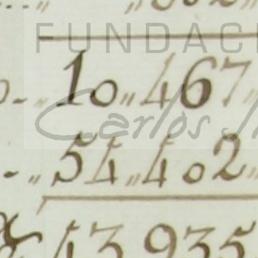 FUNDACI
10,,467
Carlos
54,,402
43,935